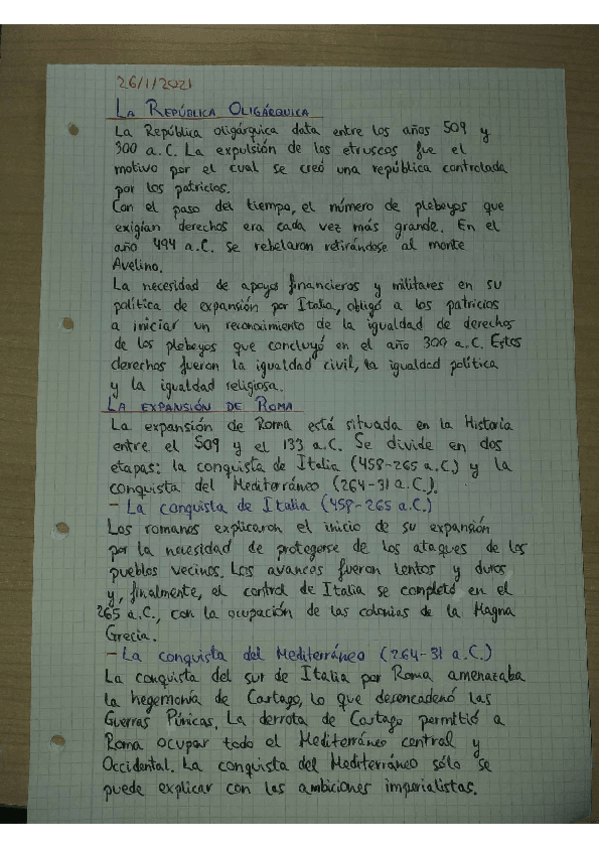 26/1/2021
LA REPÚBLICA OLIGÁRQUICA
La República oligárquica data entre los años 509 y
300 a.C. La expulsión de los etruscos fue el
motivo por el cual se creó una república controlada
por los patricios.
Con el paso del tiempo, el número de plebeyos que
exigían derechos era cada vez más grande. En el
año 494 a.C. se rebelaron retirándose al monte
Avelino.
La necesidad de apoyos financieros y militares en su
política de expansión por Italia, obligó a los patricios
a iniciar un reconocimiento de la igualdad de derechos
de los plebeyos que concluyó en el año 300 a.C. Estos
derechos fueron la igualdad civil, la igualdad política
y la igualdad religiosa.
LA EXPANSIÓN DE ROMA
La expansión de Roma está situada en la Historia
entre el 509 y el 133 a.C. Se divide en dos
etapas: la conquista de Italia (458-265 a.C.) y la
conquista del Mediterráneo (264-31 a.C.).
- La conquista de Italia (458-265 a.C.)
Los romanos explicaron el inicio de su expansión
por la necesidad de protegerse de los ataques de los
pueblos vecinos. Los avances fueron lentos y duros
y, finalmente, el control de Italia se completó en el
265 a.C., con la ocupación de las colonias de la Magna
Grecia.
- La conquista del Mediterráneo (264-31 a.C.)
La conquista del sur de Italia por Roma amenazaba
la hegemonía de Cartago, lo que desencadenó las
Guerras Púnicas. La derrota de Cartago permitió a
Roma ocupar todo el Mediterráneo central y
Occidental. La conquista del Mediterráneo sólo se
puede explicar con las ambiciones imperialistas.